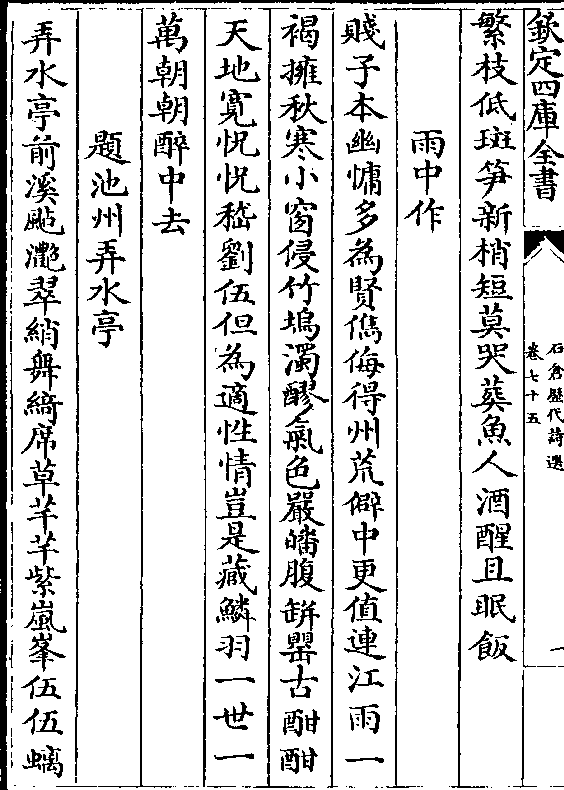 欽定四庫全書
石倉歷代詩選
卷七十五
一
繁枝低斑笋新梢短莫哭葬魚人酒醒且眠飯
雨中作
賤子本幽慵多為賢儁侮得州荒僻中更值連江雨一
褐擁秋寒小窗侵竹塢濁醪氣色嚴皤腹缾罌古酣酣
天地寛怳怳嵇劉伍但為適性情豈是藏鱗羽一世一
萬朝朝醉中去
題池州弄水亭
弄水亭前溪颭灔翠綃舞綺席草芊芊紫嵐峯伍伍螭